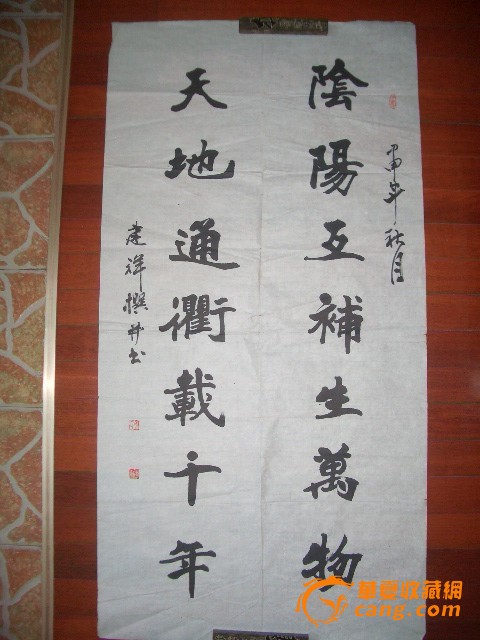 陰陽互補生萬物
天地通衢載千年
秋月
建祥撰并书
華夏收藏網
cang.com